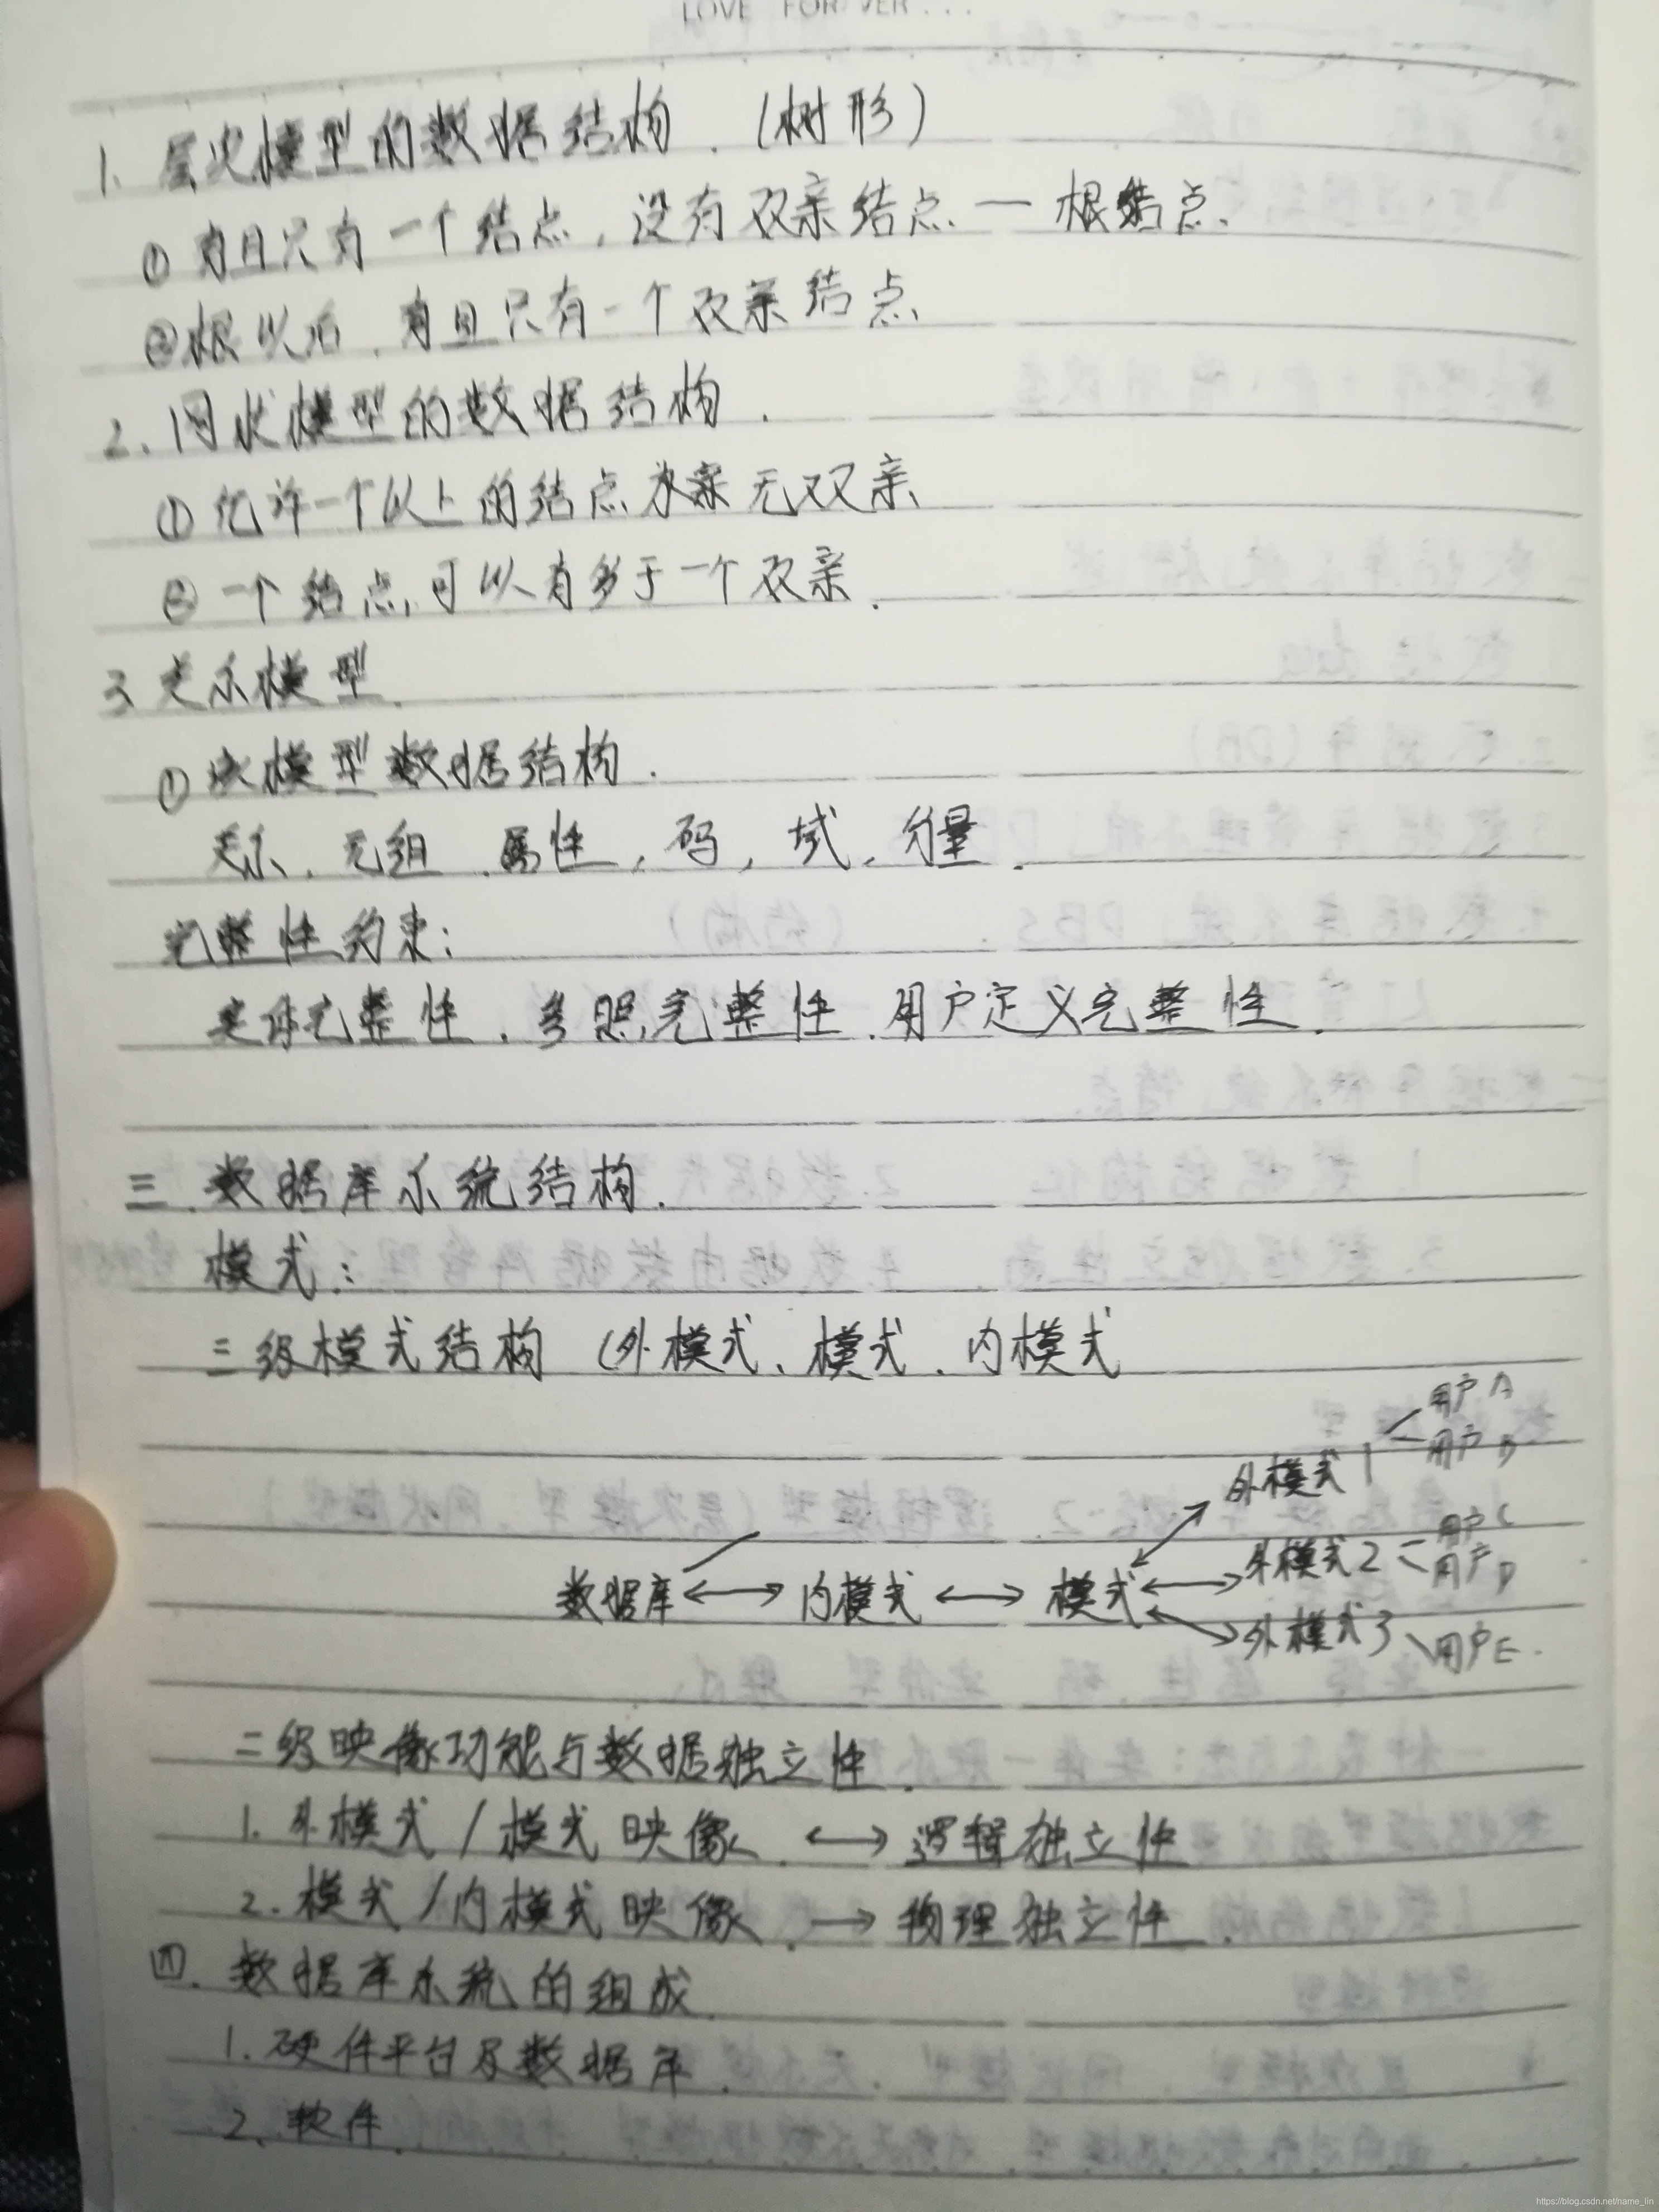 LOVE FOREVER...
1. 层次模型的数据结构.(树形)
① 有且只有一个结点,没有双亲结点 — 根结点.
②根以后,有且只有一个双亲结点
2.网状模型的数据结构.
① 允许一个以上的结点 无双亲
② 一个结点可以有多于一个双亲.
3.关系模型.
① 模型数据结构.
关系,元组,属性,码,域,分量.
完整性约束:
实体完整性,参照完整性,用户定义完整性.
三.数据库系统结构.
模式:
三级模式结构(外模式、模式、内模式
用户A
用户B
外模式1
用户C
外模式2 用户D
数据库 ↔ 内模式 ↔ 模式
外模式3 用户E.
二级映像功能与数据独立性.
1. 外模式/模式映像. ↔ 逻辑独立性
2. 模式/内模式映像. → 物理独立性.
四.数据库系统的组成.
1.硬件平台及数据库.
2.软件.
https://blog.csdn.net/name_lin